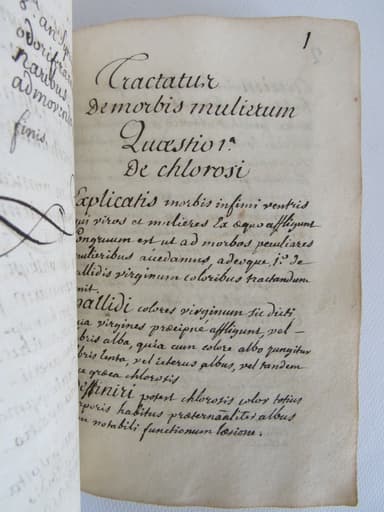 odorifera
naribus
admoventur
finis.
1
Tractatus
De morbis mulierum
Quæstio 1ª
De chlorosi
Explicatis morbis infimi ventris
qui viros et mulieres ex æquo affligunt
congruum est ut ad morbos peculiares
mulieribus accedamus, adeoque 1º de
pallidis virginum coloribus tractandum
venit.
pallidi colores virginum sic dicti
quia virgines præcipuè affligunt, vel
febris alba, quia cum colore albo jungitur
febris lenta, vel icterus albus, vel tandem
voce græca chlorosis
Diffiniri potest chlorosis color totius
corporis habitus præternaliter albus
cum notabili functionum læsione.